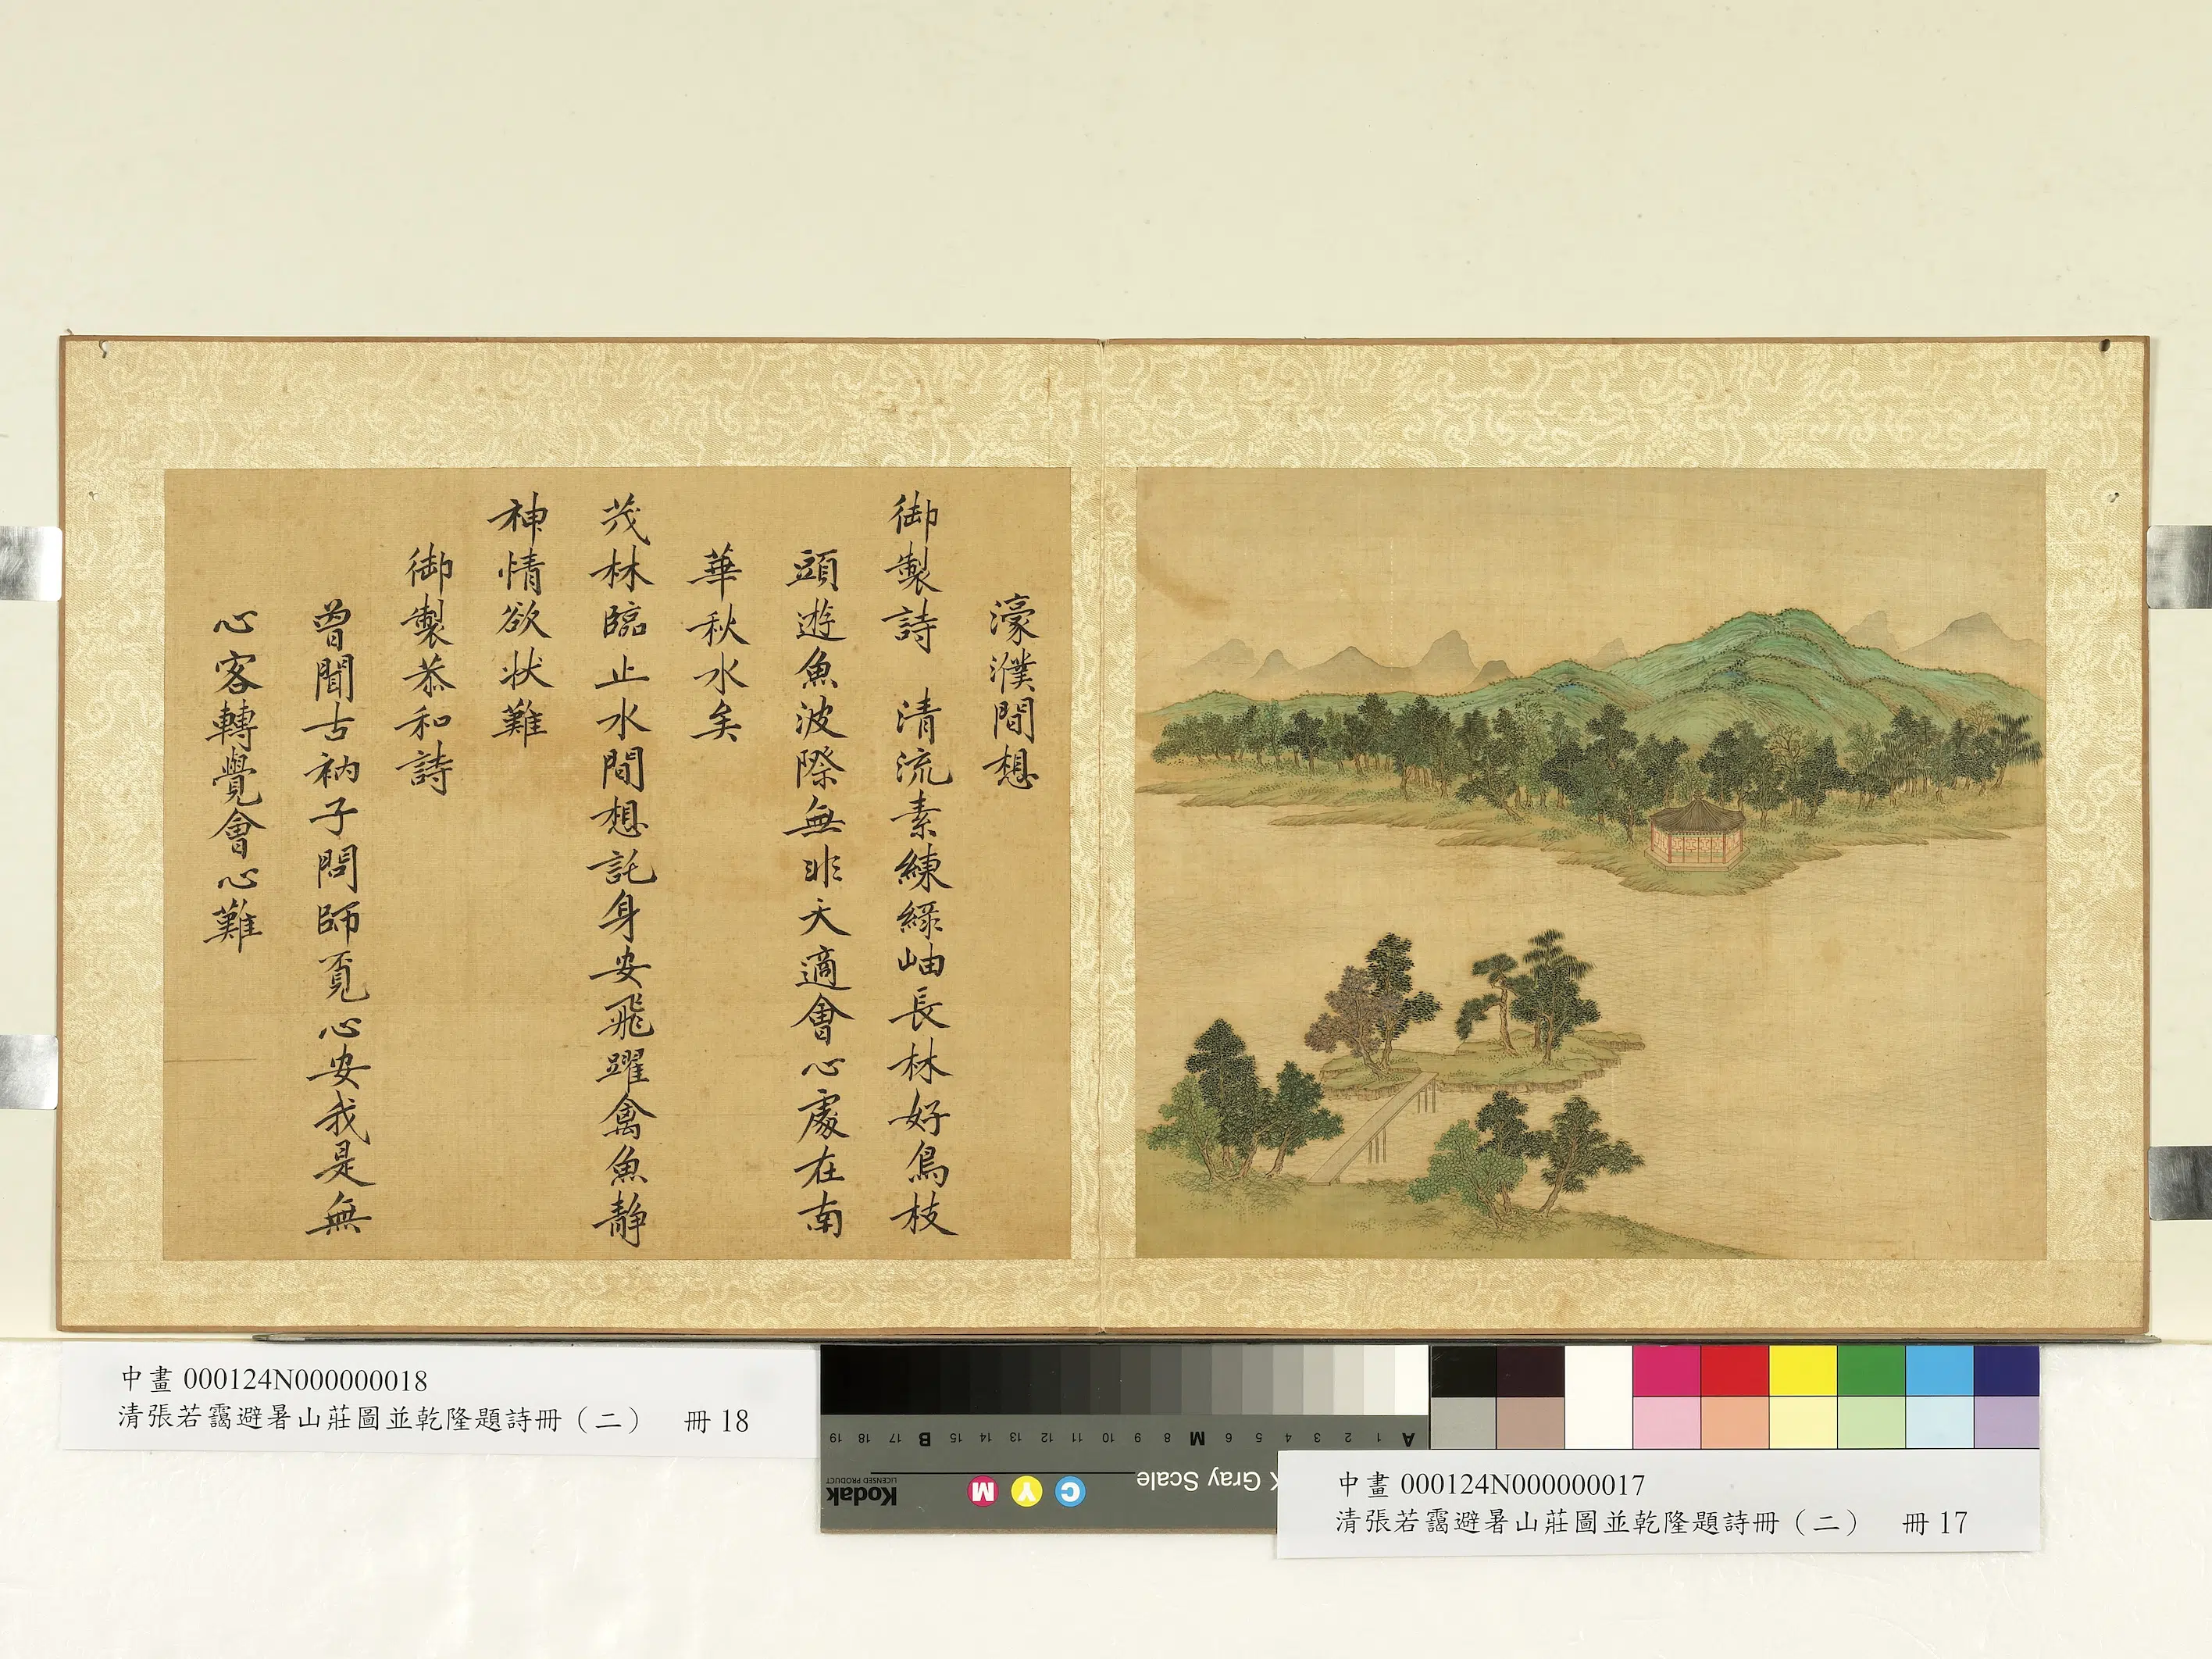 濠濮間想
御製詩 清流素練綠岫長林好鳥枝
頭遊魚波際無非天適會心處在南
華秋水矣
茂林臨止水間想託身安飛躍禽魚靜
神情欲状難
御製恭和詩
曾聞古衲子問師覔心安我是無
心客轉覺會心難
中畫 000124N000000018
清張若靄避暑山莊圖並乾隆題詩冊（二） 冊 18
A 1 2 3 4 5 6 M 8 9 10 11 12 13 14 15 B 17 18 19
Gray Scale
C Y M
Kodak
LICENSED PRODUCT
中畫 000124N000000017
清張若靄避暑山莊圖並乾隆題詩冊（二） 冊 17